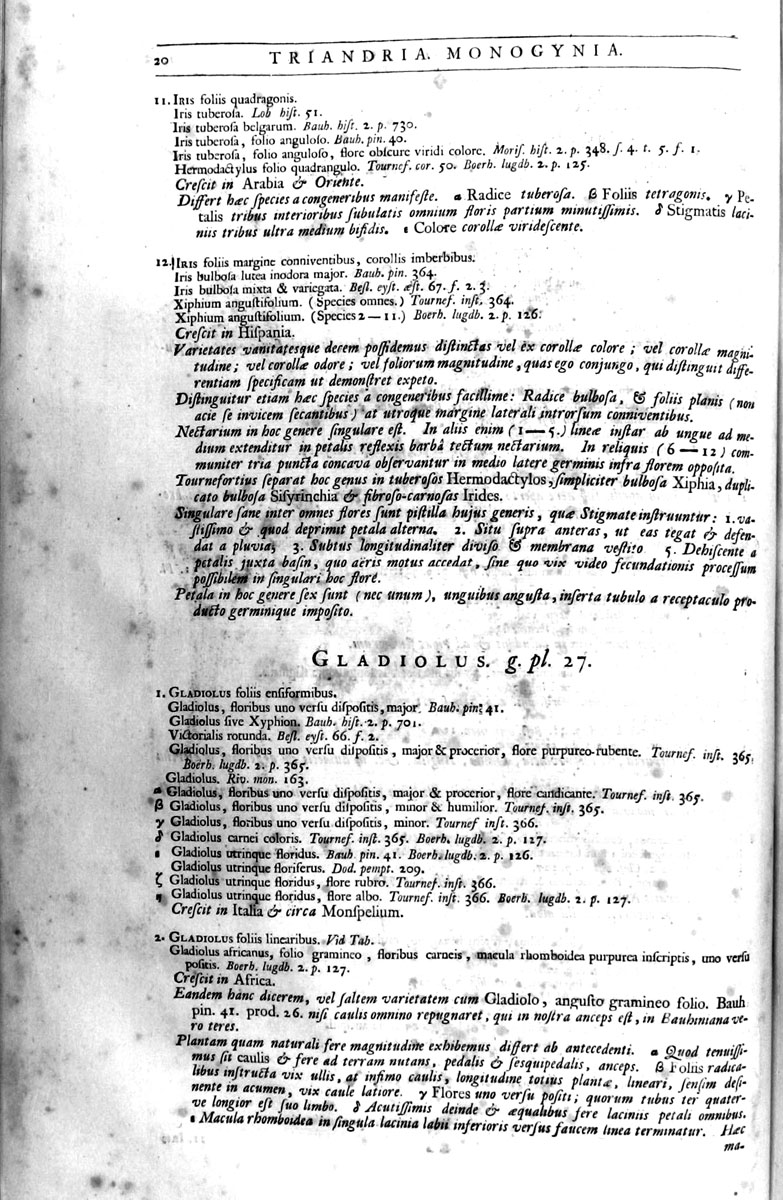 20 TRIANDRIA. MONOGYNIA.
11. IRIS foliis quadragonis.
Iris tuberoſa. Lob hiſt. 51.
Iris tuberoſa belgarum. Bauh. hiſt. 2. p. 730.
Iris tuberoſa, folio anguloſo. Bauh. pin. 40.
Iris tuberoſa, folio anguloſo, flore obſcure viridi colore. Moriſ. hiſt. 2. p. 348. ſ. 4. t. 5. f. 1.
Hermodactylus folio quadrangulo. Tournef. cor. 50. Boerh. lugdb. 2. p. 125.
Creſcit in Arabia & Oriente.
Differt hæc ſpecies a congeneribus manifeſte. α Radice tuberoſa. β Foliis tetragonis. γ Pe-
talis tribus interioribus ſubulatis omnium floris partium minutiſſimis. δ Stigmatis laci-
niis tribus ultra medium bifidis. ε Colore corollæ viridеſcente.
12. IRIS foliis margine conniventibus, corollis imberbibus.
Iris bulboſa lutea inodora major. Bauh. pin. 364.
Iris bulboſa mixta & variegata. Beſl. eyſt. æſt. 67. f. 2. 3.
Xiphium anguſtifolium. (Species omnes.) Tournef. inſt. 364.
Xiphium anguſtifolium. (Species 2 — 11.) Boerh. lugdb. 2. p. 126.
Creſcit in Hiſpania.
Varietates vanitatesque decem poſſidemus diſtinctas vel ex corollæ colore; vel corollæ magni-
tudine; vel corollæ odore; vel foliorum magnitudine, quas ego conjungo, qui diſtinguit diffe-
rentiam ſpecificam ut demonſtret expeto.
Diſtinguitur etiam hæc ſpecies a congeneribus facillime: Radice bulboſa, & foliis planis (non
acie ſe invicem ſecantibus) at utroque margine laterali introrſum conniventibus.
Nectarium in hoc genere ſingulare eſt. In aliis enim (1 — 5.) lineæ inſtar ab ungue ad me-
dium extenditur in petalis reflexis barbâ tectum nectarium. In reliquis (6 — 12) com-
muniter tria puncta concava obſervantur in medio latere germinis infra florem oppoſita.
Tournefortius ſeparat hoc genus in tuberoſos Hermodactylos, ſimpliciter bulboſa Xiphia, dupli-
cato bulboſa Siſyrinchia & fibroſo-carnoſas Irides.
Singulare ſane inter omnes flores ſunt piſtilla hujus generis, quæ Stigmate inſtruuntur: 1. va-
ſtiſſimo & quod deprimit petala alterna. 2. Situ ſupra anteras, ut eas tegat & defen-
dat a pluvia; 3. Subtus longitudinaliter diviſo & membrana veſtito 5. Dehiſcente a
petalis juxta baſin, quo aëris motus accedat, ſine quo vix video fecundationis proceſſum
poſſibilem in ſingulari hoc flore.
Petala in hoc genere ſex ſunt (nec unum), unguibus anguſta, inſerta tubulo a receptaculo pro-
ducto germinique impoſito.
GLADIOLUS. g. pl. 27.
1. GLADIOLUS foliis enſiformibus.
Gladiolus, floribus uno verſu diſpoſitis, major. Bauh. pin. 41.
Gladiolus ſive Xyphion. Bauh. hiſt. 2. p. 701.
Victorialis rotunda. Beſl. eyſt. 66. f. 2.
Gladiolus, floribus uno verſu diſpoſitis, major & procerior, flore purpureo-rubente. Tournef. inſt. 365.
Boerh. lugdb. 2. p. 365.
Gladiolus. Riv. mon. 163.
α Gladiolus, floribus uno verſu diſpoſitis, major & procerior, flore candicante. Tournef. inſt. 365.
β Gladiolus, floribus uno verſu diſpoſitis, minor & humilior. Tournef. inſt. 365.
γ Gladiolus, floribus uno verſu diſpoſitis, minor. Tournef inſt. 366.
δ Gladiolus carnei coloris. Tournef. inſt. 365. Boerh. lugdb. 2. p. 127.
ε Gladiolus utrinque floridus. Bauh. pin. 41. Boerh. lugdb. 2. p. 126.
Gladiolus utrinque floriferus. Dod. pempt. 209.
ζ Gladiolus utrinque floridus, flore rubro. Tournef. inſt. 366.
η Gladiolus utrinque floridus, flore albo. Tournef. inſt. 366. Boerh. lugdb. 2. p. 127.
Creſcit in Italia & circa Monſpelium.
2. GLADIOLUS foliis linearibus. Vid Tab.
Gladiolus africanus, folio gramineo, floribus carneis, macula rhomboidea purpurea inſcriptis, uno verſu
poſitis. Boerh. lugdb. 2. p. 127.
Creſcit in Africa.
Eandem hanc dicerem, vel ſaltem varietatem cum Gladiolo, anguſto gramineo folio. Bauh
pin. 41. prod. 26. niſi caulis omnino repugnaret, qui in noſtra anceps eſt, in Bauhiniana ve-
ro teres.
Plantam quam naturali fere magnitudine exhibemus differt ab antecedenti. α Quod tenuiſſi-
mus ſit caulis & fere ad terram nutans, pedalis & ſesquipedalis, anceps. β Foliis radica-
libus inſtructa vix ullis, at infimo caulis, longitudine totius plantæ, lineari, ſenſim deſi-
nente in acumen, vix caule latiore. γ Flores uno verſu poſiti; quorum tubus ter quater-
ve longior eſt ſuo limbo. δ Acutiſſimis deinde & æqualibus fere laciniis petali omnibus.
ε Macula rhomboidea in ſingula lacinia labii inferioris verſus faucem linea terminatur. Hæc
ma-